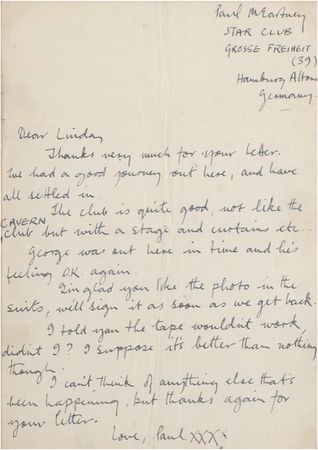 Paul McCartney
STAR CLUB
GROSSE FREIHEIT
(39)
Hamburg Altona
Germany.
Dear Linda,
Thanks very much for your letter.
We had a good journey out here, and have
all settled in.
The club is quite good, not like the
CAVERN
club but with a stage and curtains etc...
George was out here in time and he's
feeling O.K. again.
I'm glad you like the photo in the
suits, will sign it as soon as we get back.
I told you the tape wouldn't work,
didn't I? I suppose it's better than nothing
though.
I can't think of anything else that's
been happening, but thanks again for
your letter.
Love, Paul XXX